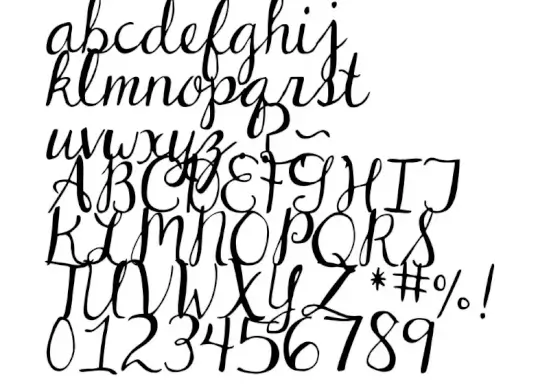 abcdefghij
klmnopqrst
uvwxyz ~
ABCDEFGHIJ
KLMNOPQRS
TUVWXYZ*#%!
0123456789